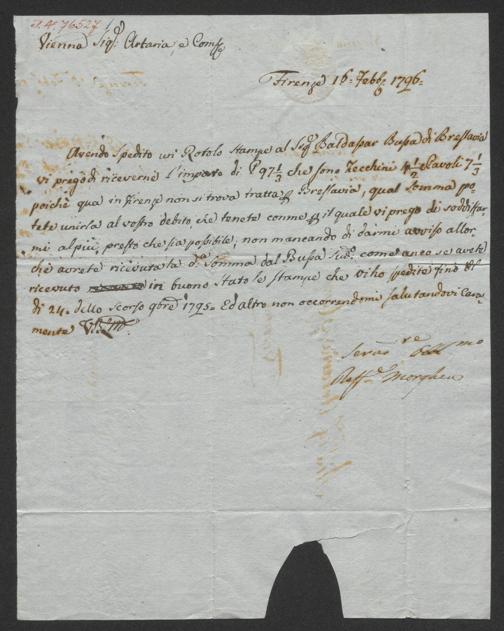 I.N. 76527
Vienna Sig.ri Artaria, e Comp.
Firenze 16 Febb.o 1796
Avendo spedito un Rotolo stampe al Sig.r Baldassar Busa di Breslavia
vi prego di riceverne l'importo di P 97 1/3 che sono Zecchini 4 1/2 e Pavoli 7 1/3
poichè qua in firenze non si trova tratta p Breslavia, qual somma po-
tete unirla al vostro debito, che tenete con me p il quale vi prego di soddisfar-
mi al più presto che sia possibile, non mancando di darmi avviso allor-
chè avrete ricevuta la d.a Somma dal Busa Sud.o come anco se avete
ricevuto in buono stato le stampe che vi ho spedite fino del
di 24. dello scorso 9bre 1795. Ed altro non occorrendomi salutandovi cara-
mente
Raff.o Morghen